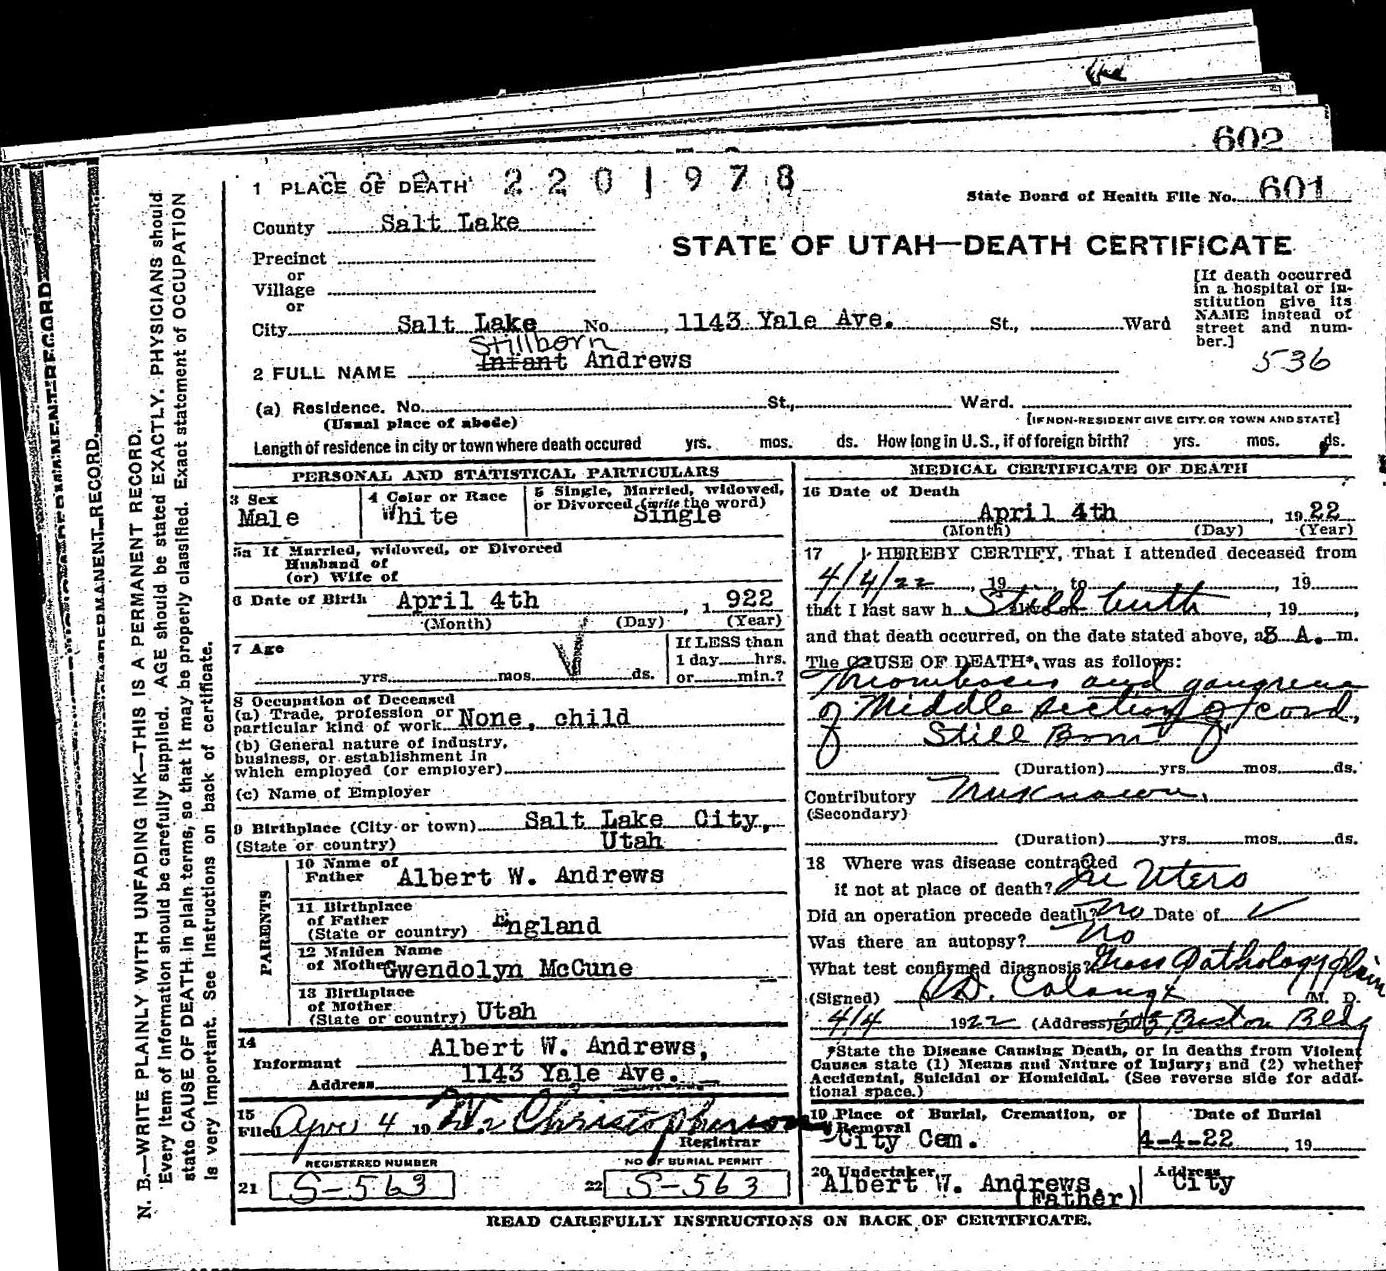 602
1 PLACE OF DEATH 2 2 0 1 9 7 8
State Board of Health File No. 601
County Salt Lake
STATE OF UTAH—DEATH CERTIFICATE
Precinct
or
Village
or
City Salt Lake No. 1143 Yale Ave. St., Ward
[If death occurred
in a hospital or in-
stitution give its
NAME instead of
street and num-
ber.]
536
Stillborn
2 FULL NAME Infant Andrews
(a) Residence. No. St., Ward.
(Usual place of abode) [IF NON-RESIDENT GIVE CITY OR TOWN AND STATE]
Length of residence in city or town where death occured yrs. mos. ds. How long in U. S., if of foreign birth? yrs. mos. ds.
PERSONAL AND STATISTICAL PARTICULARS
3 Sex
Male
4 Color or Race
White
5 Single, Married, widowed,
or Divorced (write the word)
Single
5a If Married, widowed, or Divorced
Husband of
(or) Wife of
6 Date of Birth April 4th, 1 922
(Month) (Day) (Year)
7 Age
yrs. mos. ds.
If LESS than
1 day hrs.
or min.?
8 Occupation of Deceased
(a) Trade, profession or
particular kind of work None, child
(b) General nature of industry,
business, or establishment in
which employed (or employer)
(c) Name of Employer
9 Birthplace (City or town) Salt Lake City,
(State or country) Utah
PARENTS
10 Name of
Father Albert W. Andrews
11 Birthplace
of Father
(State or country) England
12 Maiden Name
of Mother Gwendolyn McCune
13 Birthplace
of Mother
(State or country) Utah
14
Informant Albert W. Andrews,
Address 1143 Yale Ave.
15
Filed Apr 4 19 Christopherson
Registrar
REGISTERED NUMBER
21 S-563
NO OF BURIAL PERMIT
22 S-563
MEDICAL CERTIFICATE OF DEATH
16 Date of Death
April 4th, 19 22
(Month) (Day) (Year)
17 I HEREBY CERTIFY, That I attended deceased from
4/4/22, 19 to 19
that I last saw h Still birth, 19
and that death occurred, on the date stated above, at 8 A. m.
The CAUSE OF DEATH*, was as follows:
Thrombosis and gangrene
of Middle section of cord,
Still Born
(Duration) yrs. mos. ds.
Contributory Unknown.
(Secondary)
(Duration) yrs. mos. ds.
18 Where was disease contracted
if not at place of death? In Utero
Did an operation precede death? No Date of
Was there an autopsy? No
What test confirmed diagnosis? Gross Pathology plain
(Signed) M. D.
4/4 1922 (Address) Boston Bldg
*State the Disease Causing Death, or in deaths from Violent
Causes state (1) Means and Nature of Injury; and (2) whether
Accidental, Suicidal or Homicidal. (See reverse side for addi-
tional space.)
19 Place of Burial, Cremation, or
Removal
City Cem.
Date of Burial
4-4-22, 19
20 Undertaker
Albert W. Andrews,
(Father)
Address
City
READ CAREFULLY INSTRUCTIONS ON BACK OF CERTIFICATE.
N. B.—WRITE PLAINLY WITH UNFADING INK—THIS IS A PERMANENT RECORD.
Every item of information should be carefully supplied. AGE should be stated EXACTLY. PHYSICIANS should
state CAUSE OF DEATH in plain terms, so that it may be properly classified. Exact statement of OCCUPATION
is very important. See instructions on back of certificate.
PERMANENT RECORD.